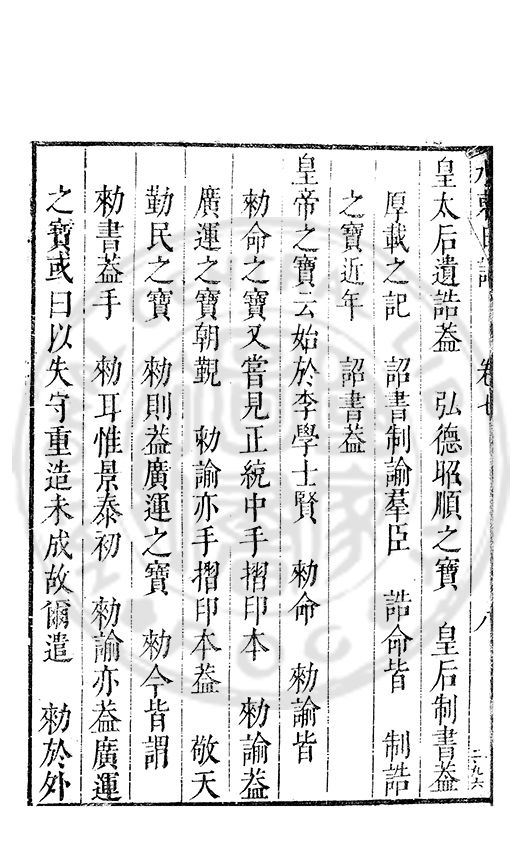 水東日記 卷七 八 二九六
皇太后遺誥葢 弘德昭順之寶 皇后制書葢
厚載之記 詔書制諭羣臣 誥命皆 制誥
之寶近年 詔書葢
皇帝之寶云始於李學士賢 勑命 勑諭皆
勑命之寶又嘗見正統中手摺印本 勑諭葢
廣運之寶朝覲 勑諭亦手摺印本葢 敬天
勤民之寶 勑則葢廣運之寶 勑今皆謂
勑書葢手 勑耳惟景泰初 勑諭亦葢廣運
之寶或曰以失守重造未成故爾遣 勑於外